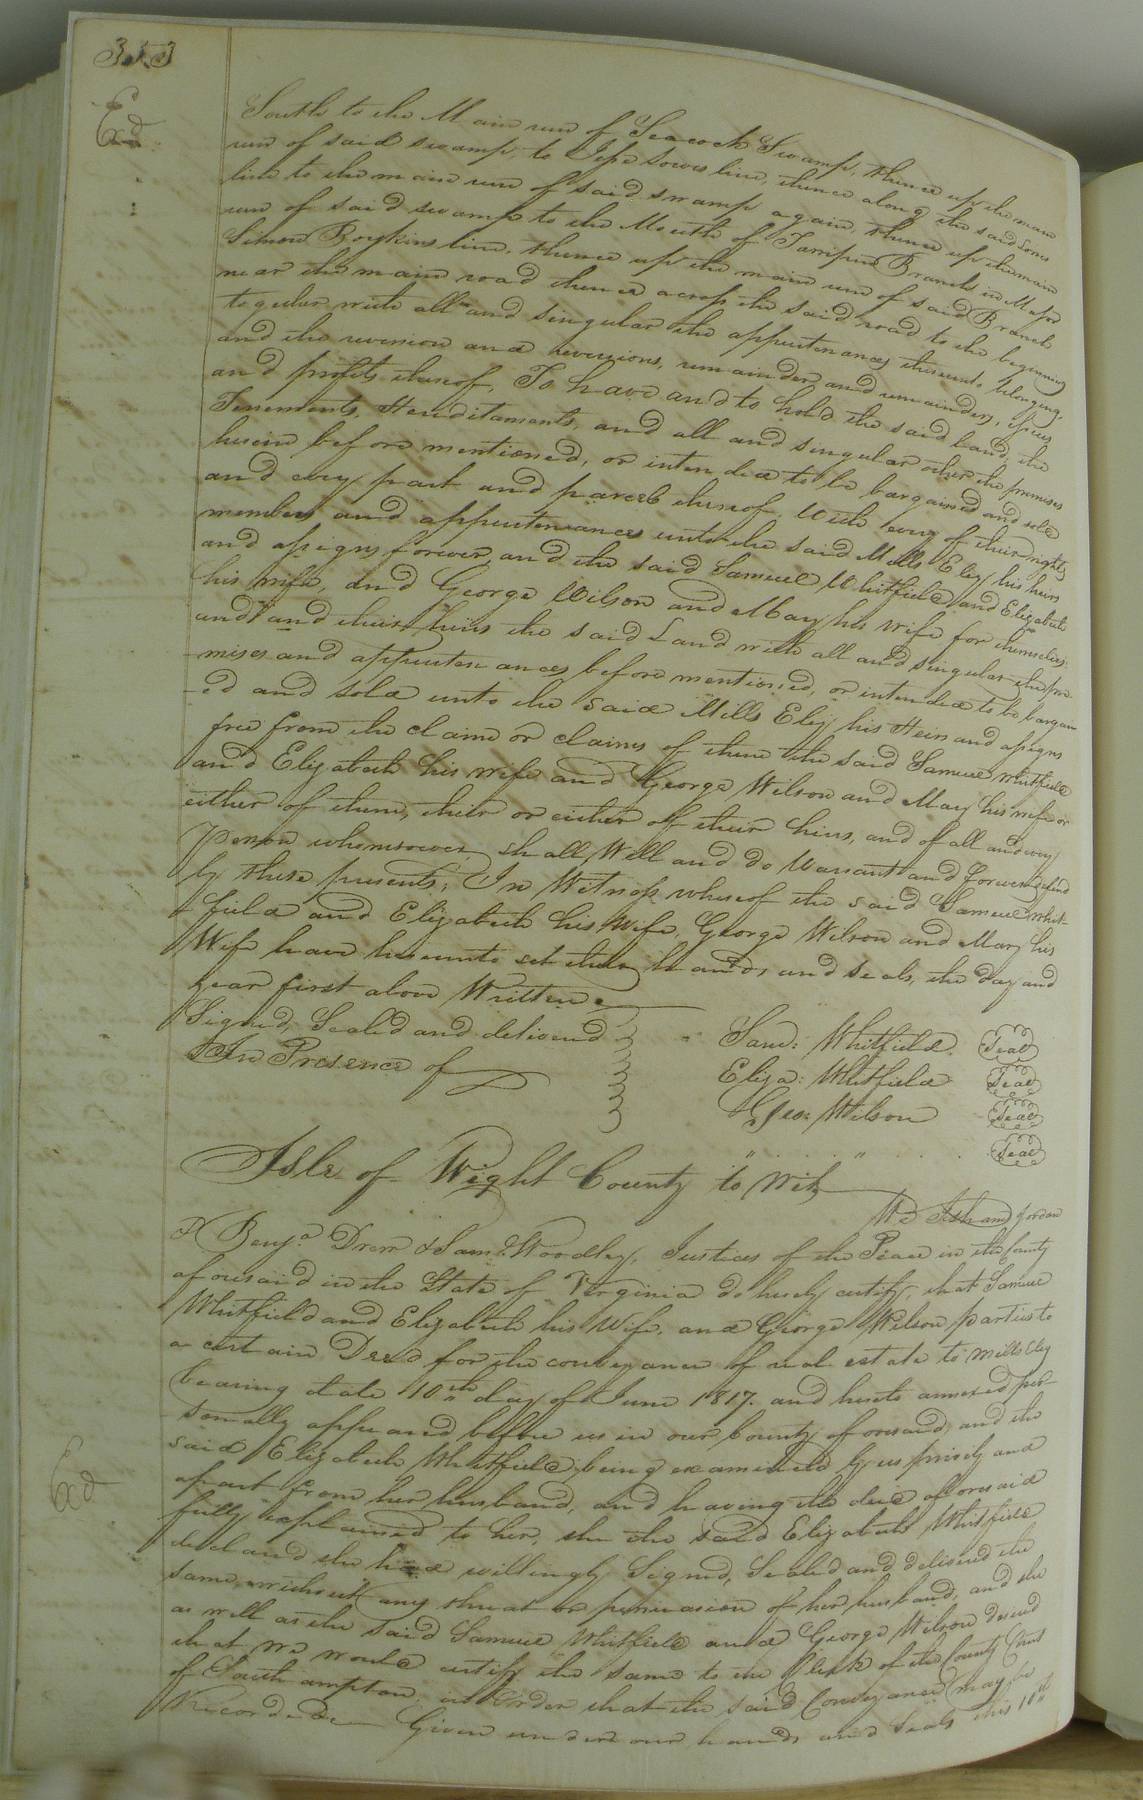 353
Exd
South to the Main run of Seacock Swamp, thence up the main
run of said swamp, to Jesse Loves line, thence along the said Loves
line to the main run of said swamp again, thence up the main
run of said swamp to the Mouth of Tarripin Branch in Major
Simon Boykins line, thence up the main run of said Branch
near the main road thence across the said road to the beginning
together with all and singular the appurtenances thereunto belonging,
and the reversion and reversions, remainder and remainders, issues
and profits thereof, To have and to hold the said land, the
Tenements, Hereditaments, and all and singular other the premises
herein before mentioned, or intended to be bargained and sold
and every part and parcel thereof, With every of their rights
members and appurtenances unto the said Mills Eley his heirs
and assigns forever, and the said Samuel Whitfield and Elizabeth
his wife, and George Wilson and Mary his wife for themselves
and their heirs the said Land with all and singular the pre-
mises and appurtenances before mentioned, or intended to be bargain
-ed and sold unto the said Mills Eley his Heirs and assigns
free from the claim or claims of them the said Samuel Whitfield
and Elizabeth his wife and George Wilson and Mary his wife or
either of them, their or either of their heirs, and of all and every
person whomsoever, shall, Will and do Warrant and forever defend
by these presents, In Witness whereof the said Samuel Whit-
field and Elizabeth his Wife, George Wilson and Mary his
Wife have hereunto set their hands and seals, the day and
year first above Written
Signed, Seal'd and delivered
In Presence of
Sam: Whitfield Seal
Eliza: Whitfield Seal
Geo: Wilson Seal
Seal
Isle of Wight County to Wit
We Jordan
Benja. Drew & Saml. Woodley, Justices of the Peace in the County
aforesaid in the State of Virginia do hereby certify, that Samuel
Whitfield and Elizabeth his Wife, and George Wilson parties to
a certain Deed for the conveyance of real estate to Mills Eley
bearing date 10th day of June 1817. and hereto annexed per-
sonally appeared before us in our County aforesaid, and the
said Elizabeth Whitfield being examined by us privily and
apart from her husband, and having the deed aforesaid
fully explained to her, she the said Elizabeth Whitfield
declared she had willingly Signed, Sealed and delivered the
same, without any threat or persuasion of her husband, and she
as well as the said Samuel Whitfield and George Wilson desired
that we would certify the same to the Clerk of the County Court
of Southampton, in Order that the said Conveyance may be
Recorded Given under our hands and Seals this 10th
Exd